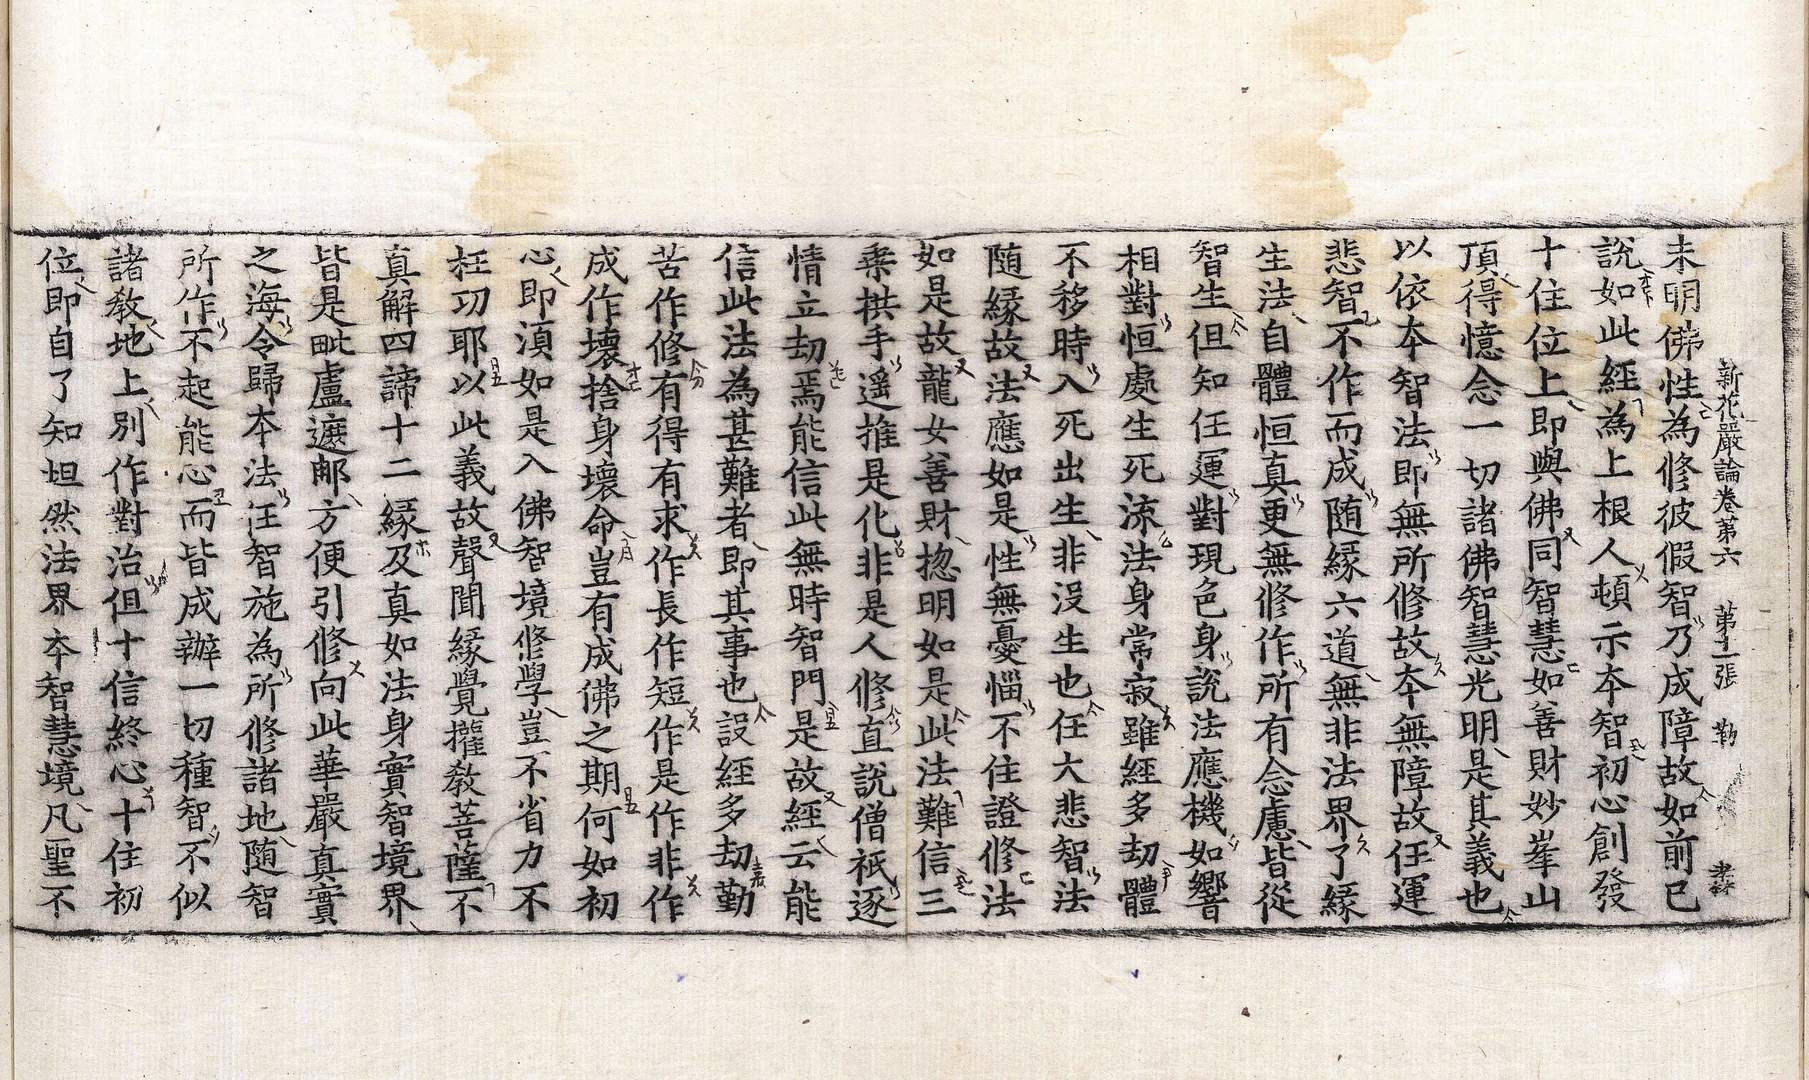 新花嚴論卷第六 第十一張 勒
未明佛性為修彼假智乃成障故如前已
說如此經為上根人頓示本智初心創發
十住位上即與佛同智慧如善財妙峯山
頂得憶念一切諸佛智慧光明是其義也
以依本智法即無所修故本無障故任運
悲智不作而成随緣六道無非法界了緣
生法自體恒真更無修作所有念慮皆從
智生但知任運對現色身說法應機如響
相對恒處生死流法身常寂雖經多劫體
不移時入死出生非沒生也任大悲智法
随緣故法應如是性無憂惱不住證修法
如是故龍女善財揔明如是此法難信三
乗拱手遥推是化非是人修直說僧祇逐
情立劫焉能信此無時智門是故經云能
信此法為甚難者即其事也設經多劫勤
苦作修有得有求作長作短作是作非作
成作壞捨身壞命豈有成佛之期何如初
心即湏如是入佛智境修學豈不省力不
枉功耶以此義故聲聞緣覺權教菩薩不
真解四諦十二緣及真如法身實智境界
皆是毗盧遮那方便引修向此華嚴真實
之海令歸本法任智施為所修諸地随智
所作不起能心而皆成辦一切種智不似
諸教地上別作對治但十信終心十住初
位即自了知坦然法界本智慧境凡聖不